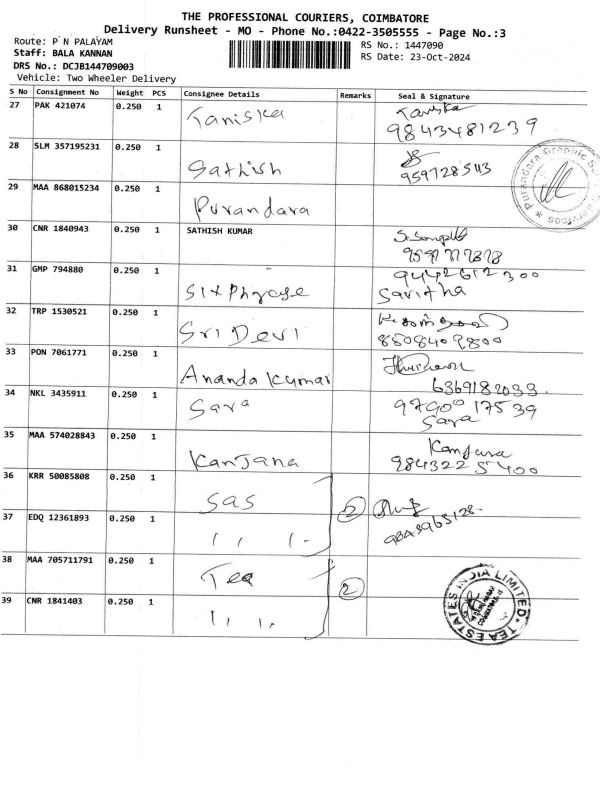 THE PROFESSIONAL COURIERS, COIMBATORE
Delivery Runsheet - MO - Phone No.:0422-3505555 - Page No.:3
Route: P N PALAYAM
RS No.: 1447090
Staff: BALA KANNAN
RS Date: 23-Oct-2024
DRS No.: DCJB144709003
Vehicle: Two Wheeler Delivery
S No Consignment No Weight PCS Consignee Details Remarks Seal & Signature
27 PAK 421074 0.250 1 Taniska Taniska
9843481239
28 SLM 357195231 0.250 1 Sathish
959728543
29 MAA 868015234 0.250 1 Purandara
30 CNR 1840943 0.250 1 SATHISH KUMAR
31 GMP 794880 0.250 1 Sixphrase 9442612300
Savitha
32 TRP 1530521 0.250 1 Sri Devi
8508409800
33 PON 7061771 0.250 1 Ananda Kumar
6369182033
34 NKL 3435911 0.250 1 Sara 9790017539
Sara
35 MAA 574028843 0.250 1 Kanjana Kanjana
9843225400
36 KRR 50085808 0.250 1 Sas 2
37 EDQ 12361893 0.250 1 ,, ,,
38 MAA 705711791 0.250 1 Tea 2
39 CNR 1841403 0.250 1 ,, ,,
TEA ESTATES INDIA LIMITED